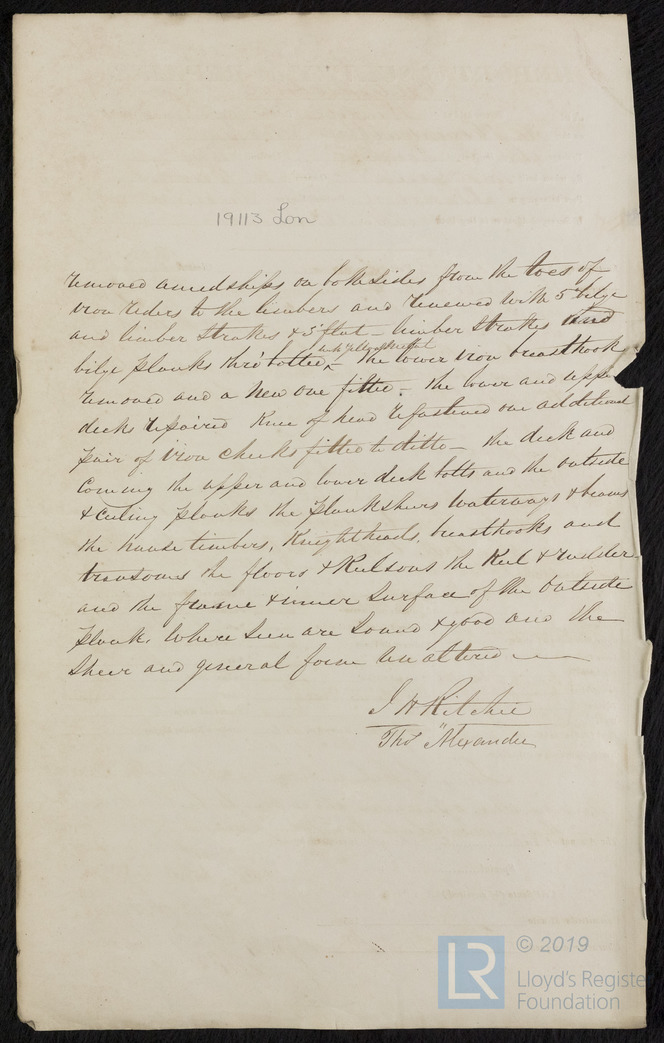 19113 Lon
removed amidships on both sides from the toes of
iron riders to the limbers and renewed with 5" bilge
and limber strakes & 3" flat - limber strakes and
bilge planks thro' bolted, - the lower iron breasthook
removed and a new one fitted - the lower and upper
decks repaired Knee of head refastened one additional
pair of iron cheeks fitted to ditto - the deck and
Coming the upper and lower deck bolts and the outside
& Ceiling planks the planksheers waterways & beams
the hawse timbers, Knightheads, breasthooks and
transoms the floors & Keelsons the Keel & rudder
and the frame & inner surface of the outside
plank, where seen are sound & good and the
Sheer and general form unaltered
J H Ritchie
Thos Alexander
LR
© 2019
Lloyd's Registe
Foundation